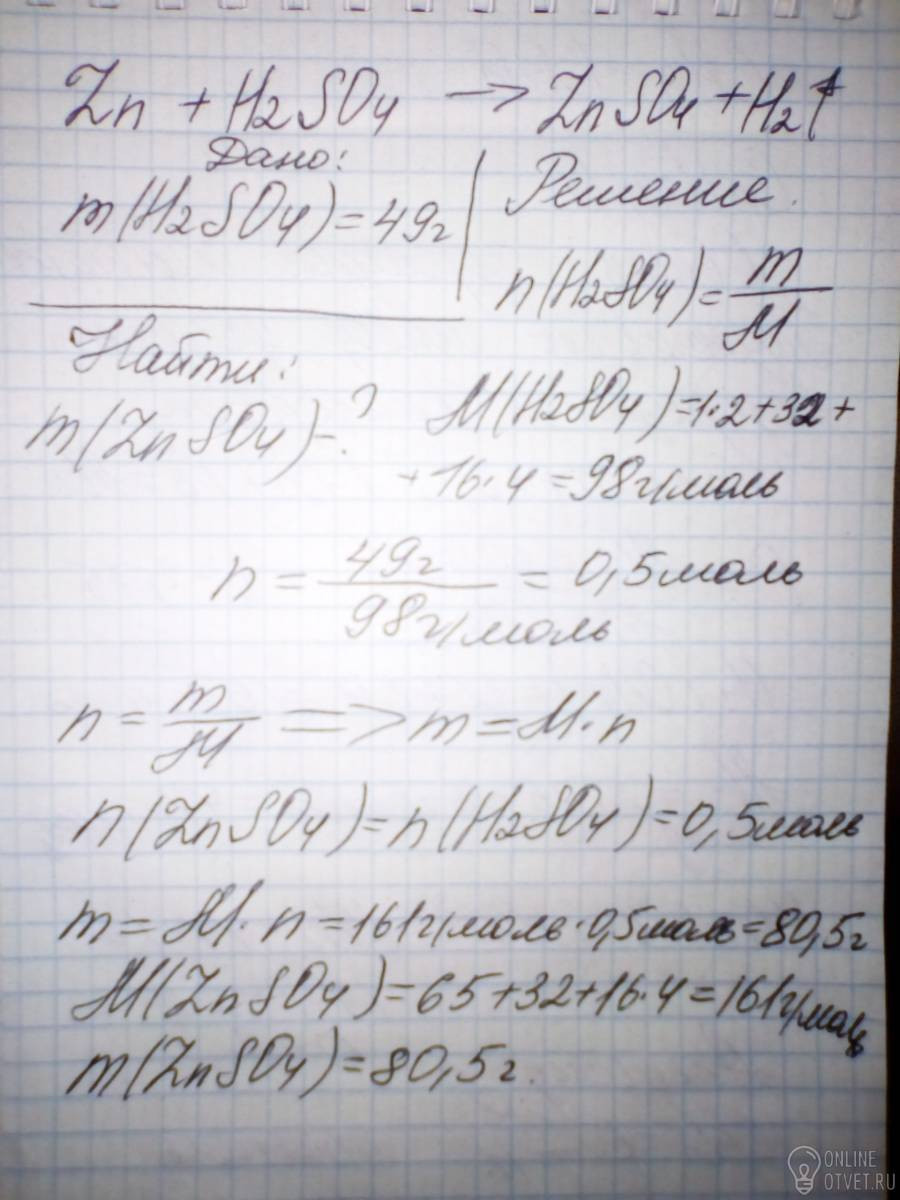 Zn + H2SO4 → ZnSO4 + H2↑
Дано:
m(H2SO4)=49г
Решение.
n(H2SO4)=m/M
Найти:
m(ZnSO4)-?
M(H2SO4)=1·2+32+
+16·4=98г/моль
n = 49г/98г/моль = 0,5моль
n = m/M => m = M·n
n(ZnSO4)=n(H2SO4)=0,5моль
m = M·n =161г/моль·0,5моль=80,5г
M(ZnSO4)=65+32+16·4=161г/моль
m(ZnSO4)=80,5г.
ONLINE
OTVET.RU